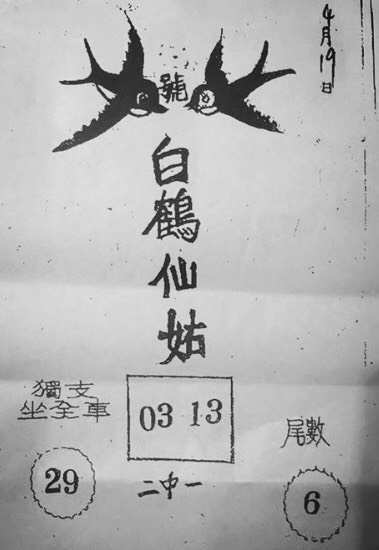 4月19日
號
白鶴仙姑
獨支
坐全車
29
03 13
二中一
尾數
6